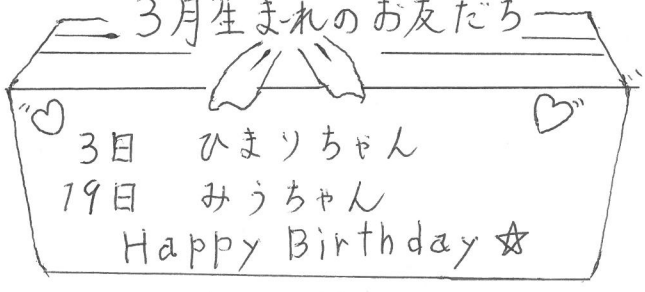 3月生まれのお友だち
3日 ひまりちゃん
19日 みうちゃん
Happy Birthday ☆